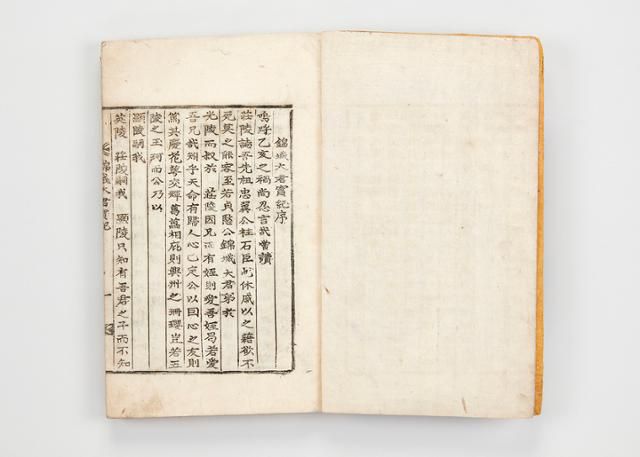 錦城大君實紀序
嗚呼乙亥之禍尚忍言哉嘗讀
莊陵誌吾先祖忠翼公柱石臣也休戚以之藉欲不
死莫之能容至若貞愍公錦城大君弟於
光陵而叔於 莊陵因兄而有姪則愛吾姪曷若愛
吾兄哉矧乎天命有歸人心已定公以因心之友則
篤其慶花萼交輝葛藟相庇則興州之珊瓔豈若五
陵之玉珂而公乃以
顯陵嗣我
英陵 莊陵嗣我 顯陵只知有吾君之子而不知
錦城大君實紀 一